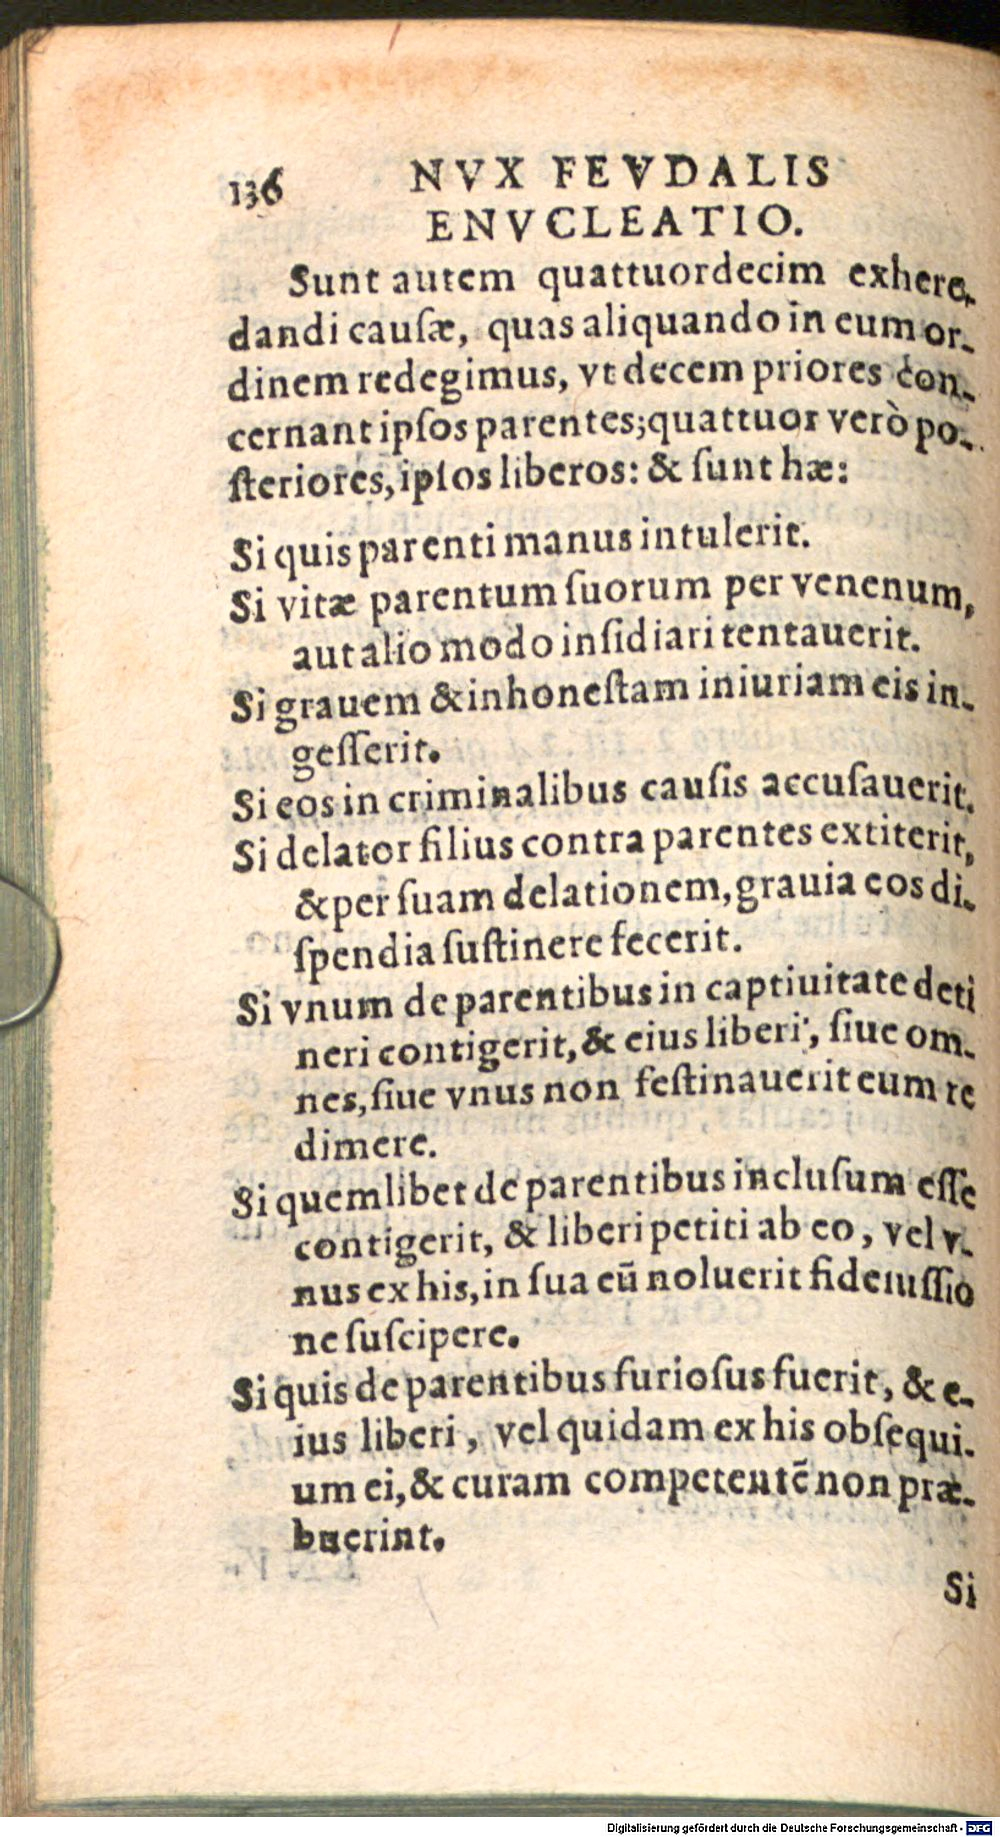 136 NVX FEVDALIS
ENVCLEATIO.
Sunt autem quattuordecim exhere-
dandi cauſæ, quas aliquando in eum or-
dinem redegimus, vt decem priores con-
cernant ipſos parentes; quattuor verò po-
ſteriores, ipſos liberos: & ſunt hæ:
Si quis parenti manus intulerit.
Si vitæ parentum ſuorum per venenum,
aut alio modo inſidiari tentauerit.
Si grauem & inhoneſtam iniuriam eis in-
geſſerit.
Si eos in criminalibus cauſis accuſauerit.
Si delator filius contra parentes extiterit,
& per ſuam delationem, grauia eos di-
ſpendia ſuſtinere fecerit.
Si vnum de parentibus in captiuitate deti
neri contigerit, & eius liberi, ſiue om-
nes, ſiue vnus non feſtinauerit eum re
dimere.
Si quemlibet de parentibus incluſum eſſe
contigerit, & liberi petiti ab eo, vel v-
nus ex his, in ſua eũ noluerit fideiuſſio
ne ſuſcipere.
Si quis de parentibus furioſus fuerit, & e-
ius liberi, vel quidam ex his obſequi-
um ei, & curam competentẽ non præ-
buerint.
Si
Digitalisierung gefördert durch die Deutsche Forschungsgemeinschaft - DFG